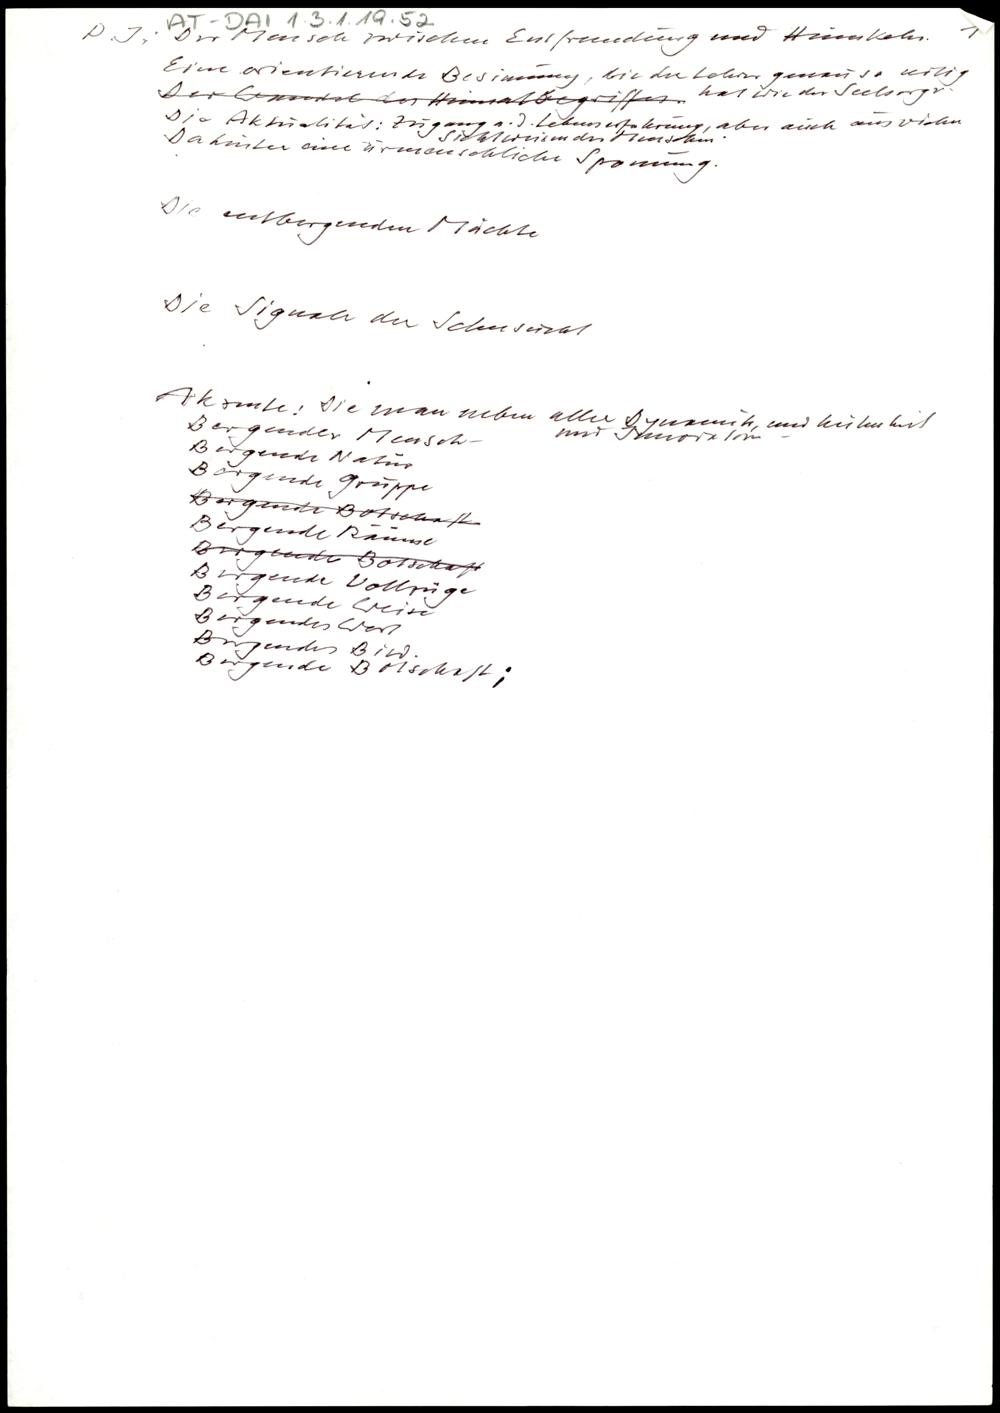 AT-DAI 1.3.1.19.52
P.J.: Der Mensch zwischen Entfremdung und Heimkehr. 1
Eine orientierende Besinnung, die der Lehrer genau so nötig
hat wie der Seelsorger.
Der Wandel des Heimatbegriffes.
Die Aktualität: Zugang a. d. Lebenserfahrung, aber auch aus vielen
Sichtweisen des Menschen.
Dahinter eine urmenschliche Spannung.
Die entbergenden Mächte
Die Signale der Sehnsucht
Akzente: Die man neben aller Dynamik, und
und Innovation -
Bergender Mensch -
Bergende Natur
Bergende Gruppe
Bergende Botschaft
Bergende Räume
Bergende Botschaft
Bergende Vollzüge
Bergende Weise
Bergendes Wort
Bergendes Bild.
Bergende Botschaft;